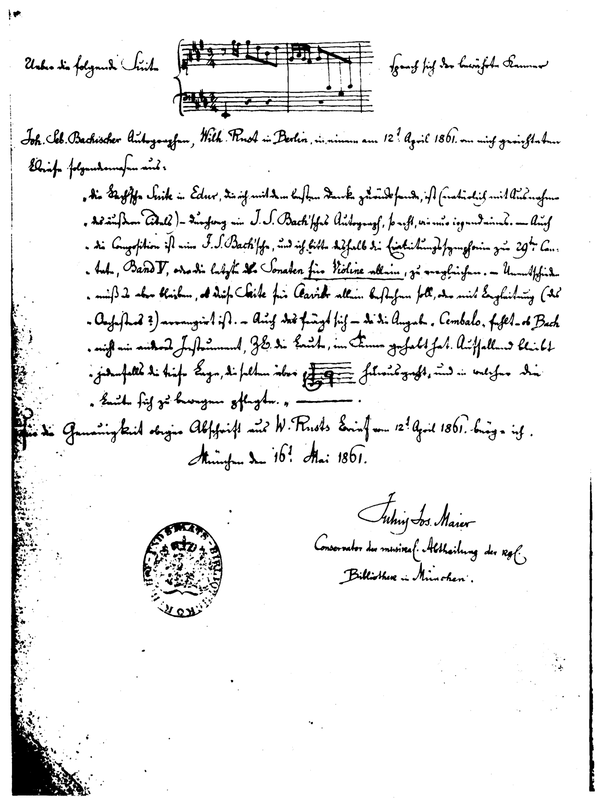 Ueber die folgende Suite sprach sich der bewährte Kenner
Joh. Seb. Bachischer Autographen, Wilh. Rust in Berlin, in einem am 12t April 1861. an mich gerichteten
Briefe folgendermasen aus:
„die Bach'sche Suite in Edur, die ich mit dem besten Danke zurücksende, ist (natürlich mit Ausnahme
„des äußern Titels) – durchweg ein J. S. Bach'sches Autograph, so echt, wie nur irgend eines. – Auch
„die Composition ist eine J. S. Bach'sche, und ich bitte deshalb die Einleitungssymphonie zur 29ten Can-
„tate, Band V, oder die letzte der Sonaten für Violine allein, zu vergleichen. – Unentschieden
„muß es aber bleiben, ob diese Suite für Clavier allein bestehen soll, oder mit Begleitung (des
„Orchesters?) arrangirt ist. – Auch das frägt sich – da die Angabe „Cembalo„ fehlt – ob Bach
„nicht ein anderes Instrument, z.B. die Laute, im Sinne gehabt hat. Auffallend bleibt
„jedenfalls die tiefe Lage, die selten über hinausgeht, und in welcher die
„Laute sich zu bewegen pflegte.„
Für die Genauigkeit obiger Abschrift aus W. Rusts Brief vom 12t April 1861. bürge ich.
München den 16t Mai 1861.
Julius Jos. Maier
Conservator der musical. Abtheilung der kgl.
Bibliothek in München.